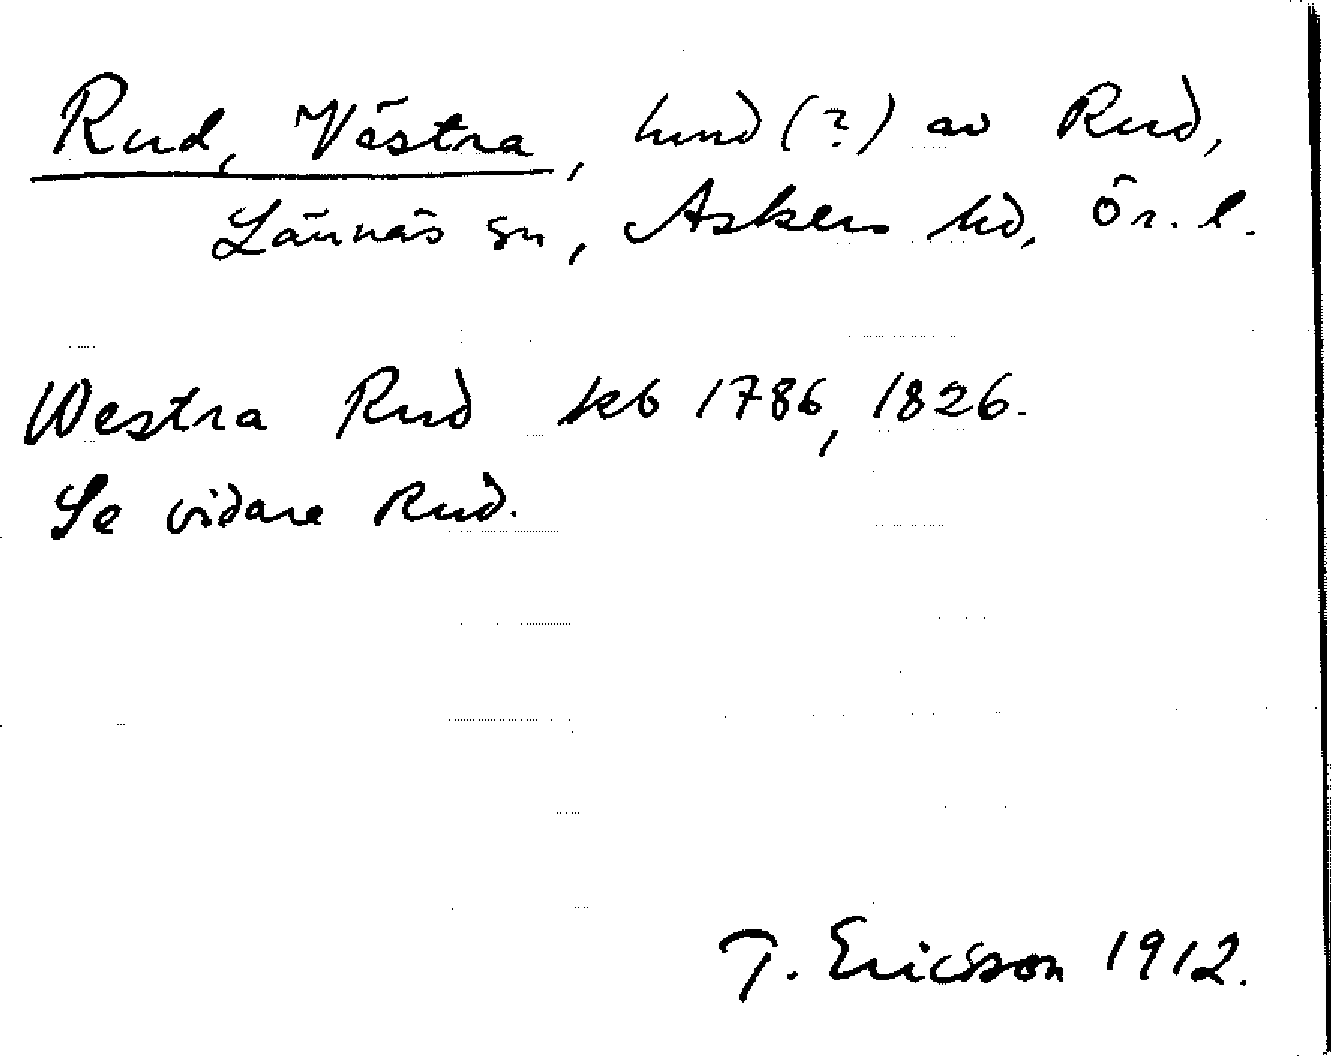 Rud, Västra, hmd (?) av Rud,
Lännäs sn, Askers hd, Ör. l.
Westra Rud kb 1786, 1826.
Se vidare Rud.
T. Ericsson 1912.